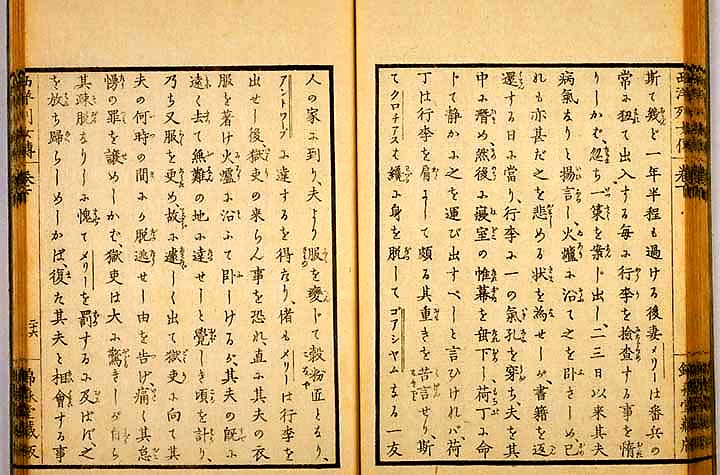 西洋列女傳 卷下
斯て幾ど一年半程も過ける後妻メリーは番兵の
常に狃て出入する毎に行李を撿查する事を惰
りしかば、忽ち一策を案じ出し、二三日以來其夫
病氣なりと揚言し、火爐に沿て之を卧さしめ己
れも亦甚だ之を悲める状を為せしが、書籍を返
還する日に當り、行李に一の氣孔を穿ち、夫を其
中に潜め、然後に寢室の帷幕を垂下し、荷丁に命
じて静かに之を運び出すべしと言ひければ、荷
丁は行李を肩にして頗る其重きを苦言せり、斯
てクロチアスも纔に身を脱してゴアシヤムなる一友
人の家に到り、夫より服を變じて穀粉匠となり、
アントワープに達するを得たり、偖もメリーは行李を
出せし後、獄吏の来らん事を恐れ、直に其夫の衣
服を着け火爐に沿ふて卧しけるが、其夫の既に
遠く去て無難の地に達せしと覺しき頃を計り、
乃ち又服を更め、故に遽しく出て獄吏に向て其
夫の何時の間にか脱逃せし由を告げ、痛く其怠
慢の罪を譲めしかば、獄吏は大に驚きしが自ら
其疎脱なりしに愧てメリーを罰するに及ばず之
を放ち歸らしめしかば、復た其夫と相會する事
西洋列女傳 卷下 二十六